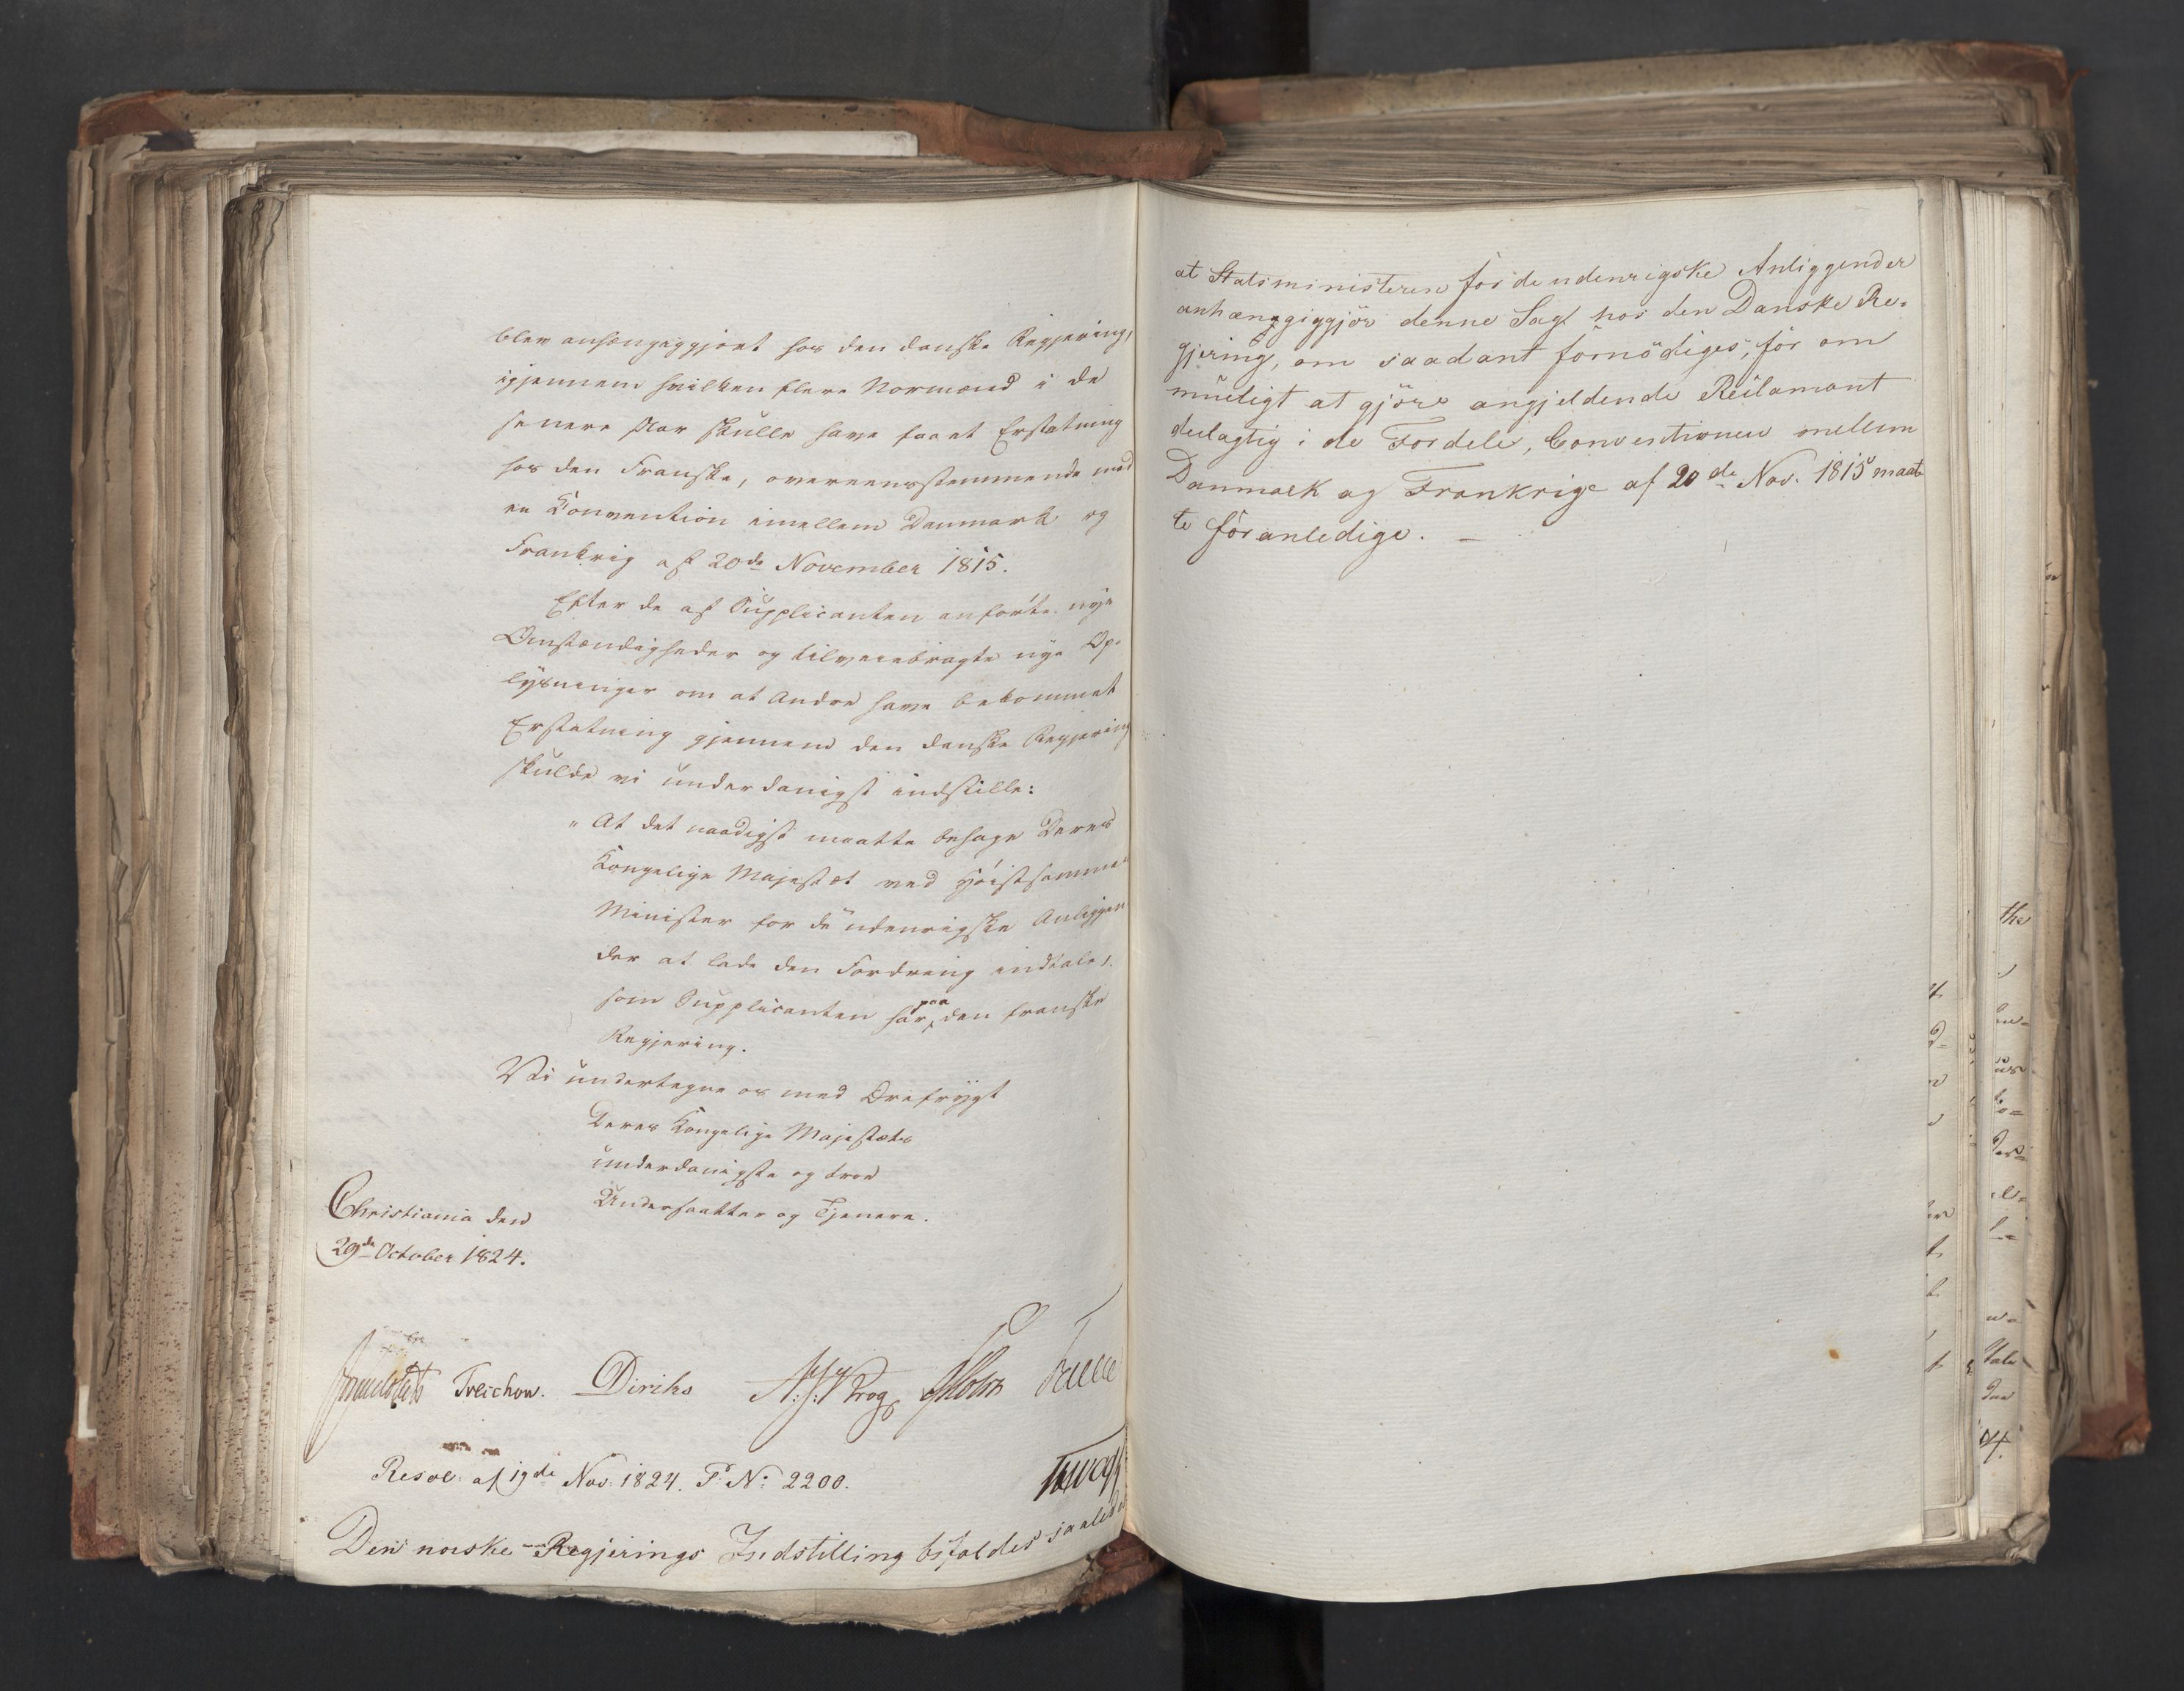 blev anhængiggjort hos den danske Regjering,
igjennem hvilken flere Normænd i de
senere Aar skulle have faaet Erstatning
hos den Franske, overeensstemmende med
en Convention imellem Danmark og
Frankrig af 20de November 1815.
Efter de af Supplicanten anførte nye
Omstændigheder og tilveiebragte nye Op-
lysninger om at Andre have bekommet
Erstatning gjennem den danske Regjering
skulde vi underdanigst indstille:
"At det naadigst maatte behage Deres
Kongelige Majestæt ved Høistsamme
Minister for de udenrigske Anliggen
der at lade den Fordring indtale,
som Supplicanten har paa den franske
Regjering.
Vi undertegne os med Ærefrygt
Deres Kongelige Majestæts
underdanigste og troe
Undersaatter og Tjenere.
Christiania den
29de October 1824.
Treschow. Diriks
Resol: af 19de Nov. 1824. P. No: 2200.
Den norske Regjerings Indstilling bifaldes saaledes
at Statsministeren for de udenrigske Anliggender
anhænggiggjör denne Sag hos den Danske Re-
gjering, om saadant fornödiges, for om
mueligt at gjöre angjeldende Reclamant
deelagtig i de Fordele, Conventionen mellem
Danmark og Frankrige af 20de Nov. 1815 maat
te foranledige. -